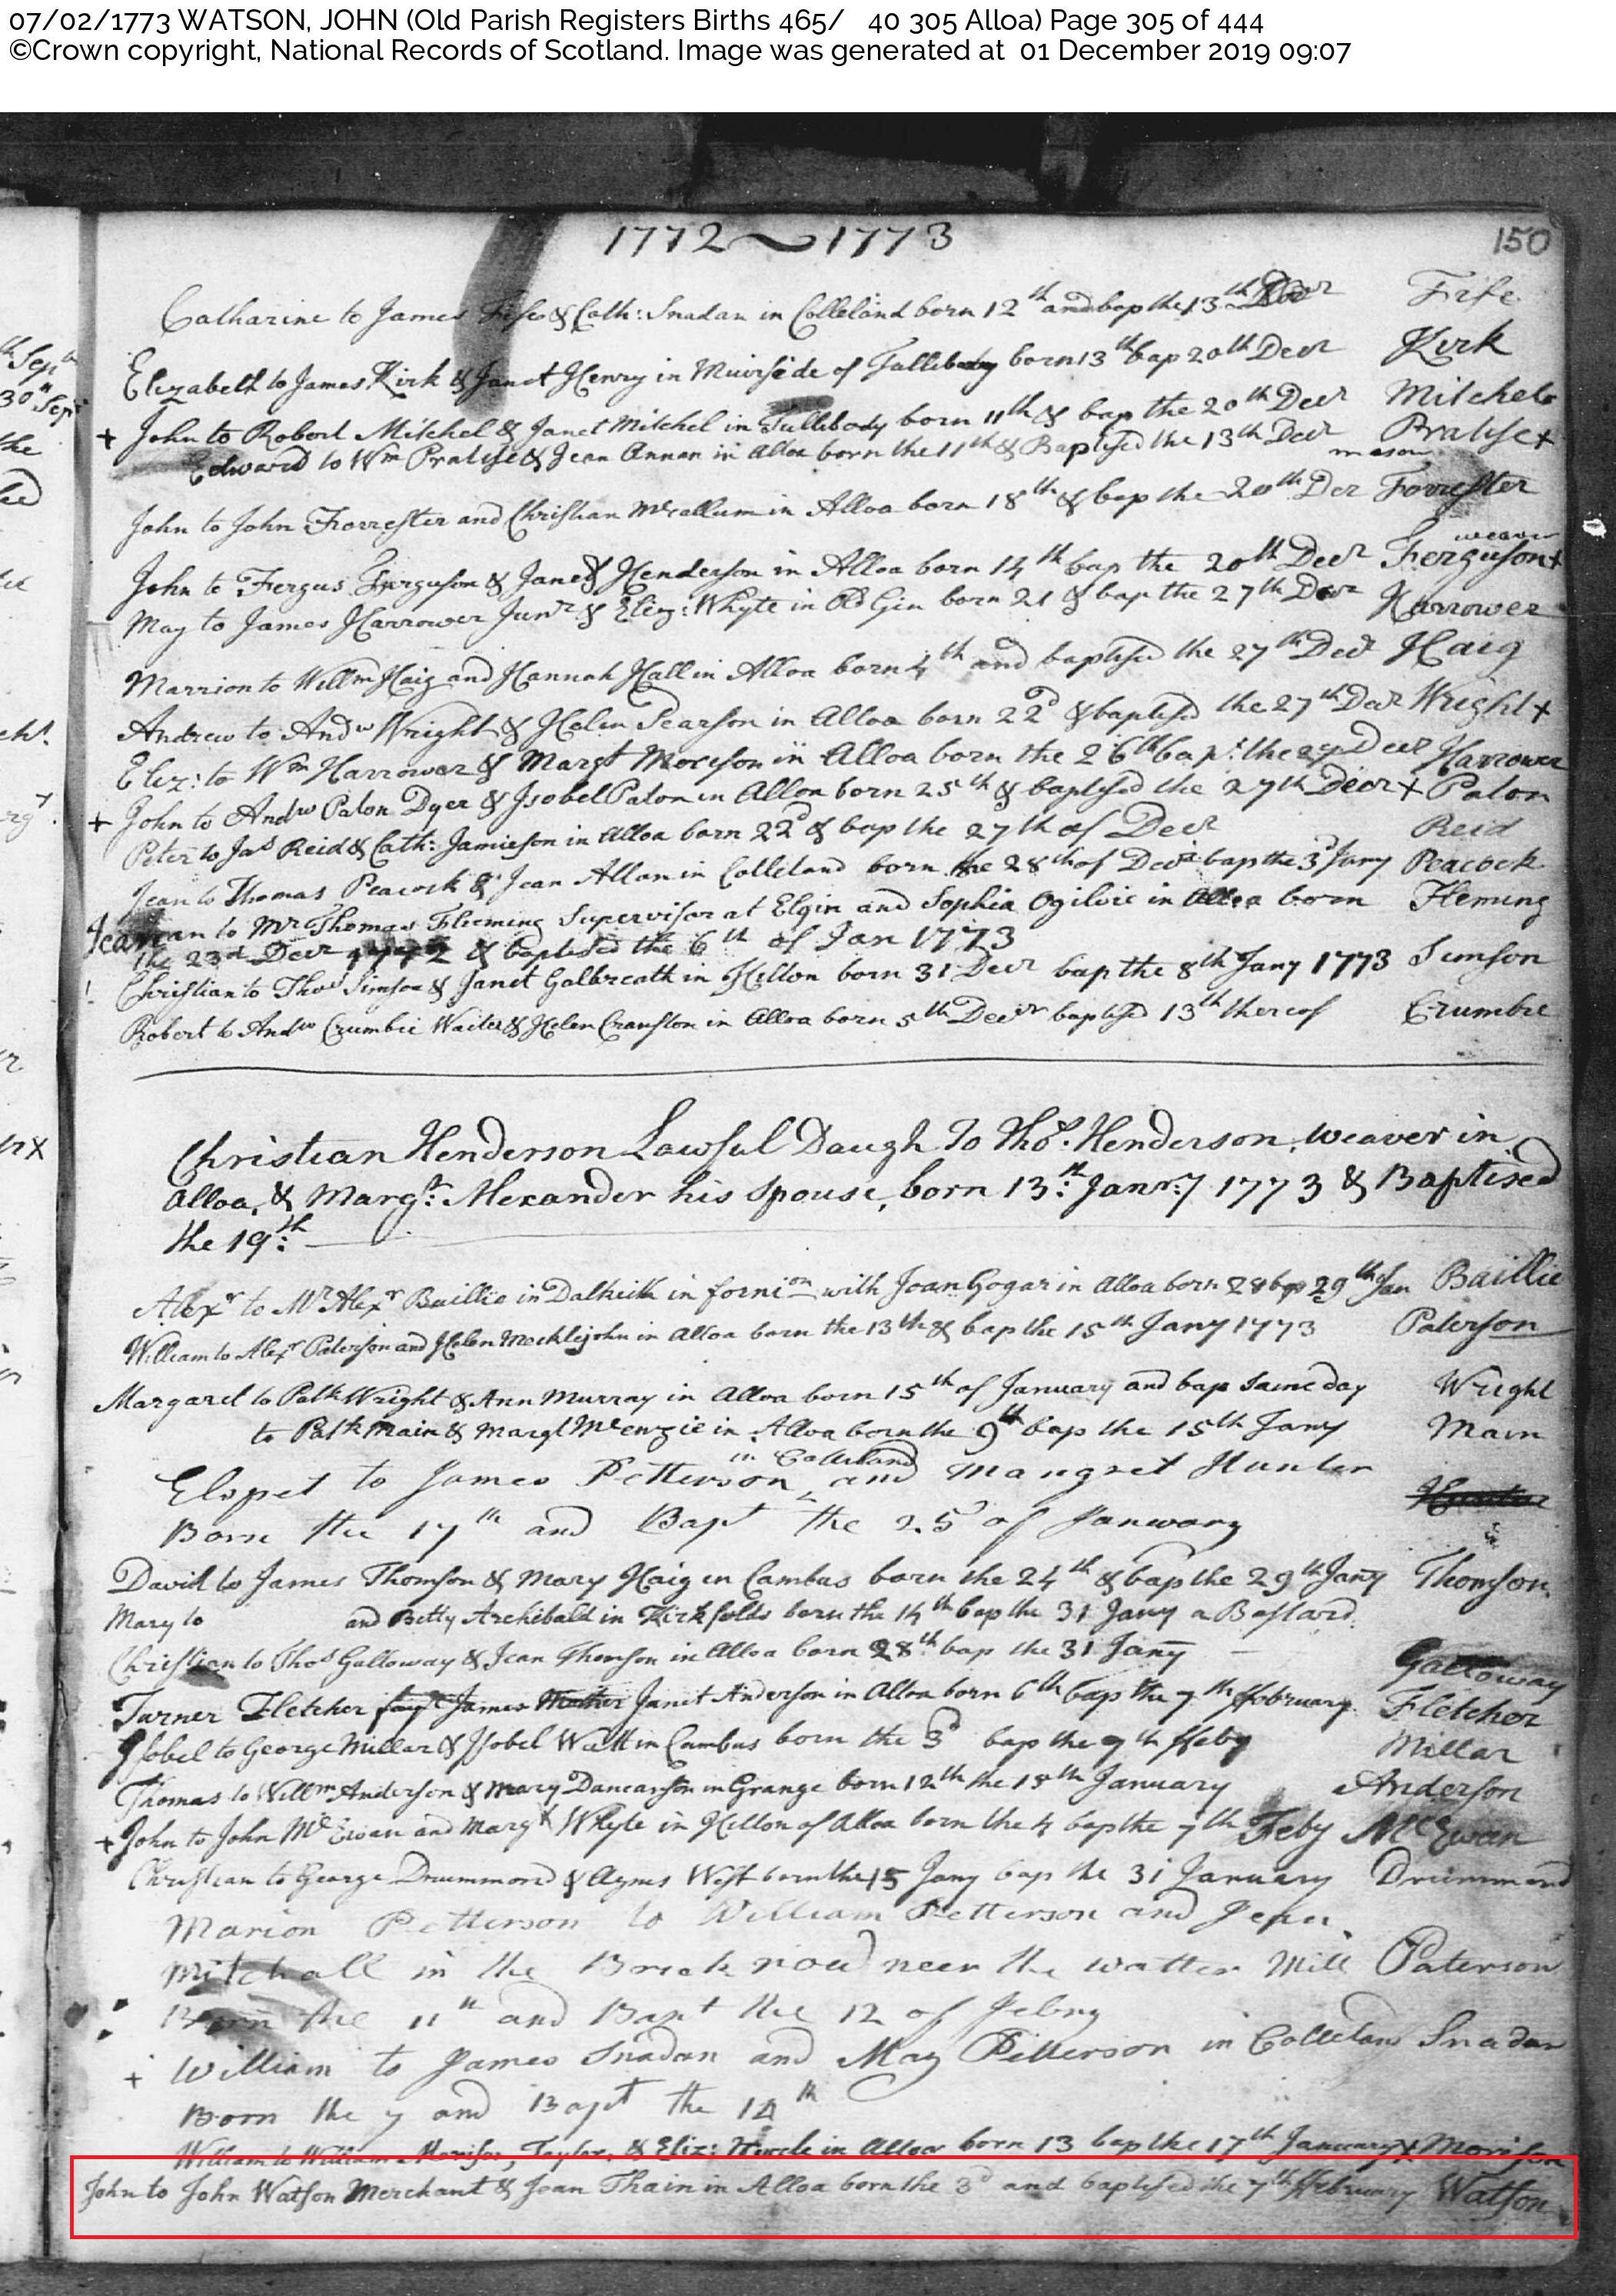 07/02/1773 WATSON, JOHN (Old Parish Registers Births 465/ 40 305 Alloa) Page 305 of 444
©Crown copyright, National Records of Scotland. Image was generated at 01 December 2019 09:07
1772 ~ 1773 150
Catharine to James Fife & Cath: Snadan in Colleland born 12th and bap the 13th Decr Fife
Elizabeth to James Kirk & Janet Henry in Muirside of Tullibody born 13th bap 20th Decr Kirk
+ John to Robert Mitchel & Janet Mitchel in Tullibody born 11th & bap the 20th Decr Mitchel
Edward to Wm Pratise & Jean Annan in Alloa born the 11th & Baptised the 13th Decr Pratise +
mason
John to John Forrester and Christian McCallum in Alloa born 18th & bap the 20th Der Forrester
weaver
John to Fergus Ferguson & Janet Henderson in Alloa born 14th bap the 20th Decr Ferguson +
May to James Harrower Junr & Eliz: Whyte in born 21 & bap the 27th Decr Harrower
Marrion to Willm Haig and Hannah Hall in Alloa born 4th and baptised the 27th Decr Haig
Andrew to Andw Wright & Helen Pearson in Alloa born 22d & baptised the 27th Decr Wright +
Eliz: to Wm Harrower & Margt Morison in Alloa born the 26th bapt the 27 Decr Harrower
+ John to Andw Paton Dyer & Isobel Paton in Alloa born 25th & baptised the 27th Decr + Paton
Peter to Jas Reid & Cath: Jamieson in Alloa born 22d & bap the 27th of Decr Reid
Jean to Thomas Peacock & Jean Allan in Colleland born the 28th of Decr bap the 3d Jany Peacock
to Mr Thomas Fleming Supervisor at Elgin and Sophia Ogilvie in Alloa born Fleming
the 23d Decr 1772 & baptised the 6th of Jan 1773
Christian to Thos Simson & Janet Galbreath in Hilton born 31 Decr bap the 8th Jany 1773 Simson
Robert to Andw Crumbie Waiter & Helen Cranston in Alloa born 5th Decr baptised 13th thereof Crumbie
Christian Henderson Lawful Daugh To Thos. Henderson, weaver in
Alloa, & Margt: Alexander his Spouse, born 13th: Janry 1773 & Baptised
the 19th:
Alexr to Mr Alexr Baillie in Dalkeith in fornion with Joan Gogar in Alloa born 28 bap 29th Jan Baillie
William to Alexr Paterson and Helen Mecklejohn in Alloa born the 13th & bap the 15th Jany 1773 Paterson
Margaret to Patk Wright & Ann Murray in Alloa born 15th of January and bap same day Wright
to Patk Main & Margt McEnzie in Alloa born the 9th bap the 15th Jany Main
in Colleland
Elspet to James Petterson and Mangret Hunter
Born the 17th and Bapt the 25 of Janwary
David to James Thomson & Mary Haig in Cambus born the 24th & bap the 29th Jany Thomson
Mary to and Betty Archibald in Kirkfolds born the 14th bap the 31 Jany a Bastard
Christian to Thos Galloway & Jean Thomson in Alloa born 28th bap the 31 Jany Galloway
Turner Fletcher James Janet Anderson in Alloa born 6th bap the 7th ffebruary Fletcher
Isobel to George Millar & Isobel Watt in Cambus born the 3d bap the 7th ffeby Millar
Thomas to Willm Anderson & Mary Duncanson in Grange born 12th the 15th January Anderson
+ John to John McEwan and Mary Whyte in Hilton of Alloa born the 4 bap the 7th Feby McEwan
Christian to George Drummond & Agnes West born the 15 Jany bap the 31 January Drummond
Marion Petterson to William Petterson and Jean
Mitchall in the Brick near the watter Mill Paterson
Born the 11th and Bapt the 12 of Febry
+ William to James Snadan and May Pitterson in Colleland Snadan
Born the 7 and Bapt the 14th
William to William Morison, Taylor, & Eliz: in Alloa born 13 bap the 17th January + Morison
John to John Watson Merchant & Jean Thain in Alloa born the 3d and baptised the 7th ffebruary Watson